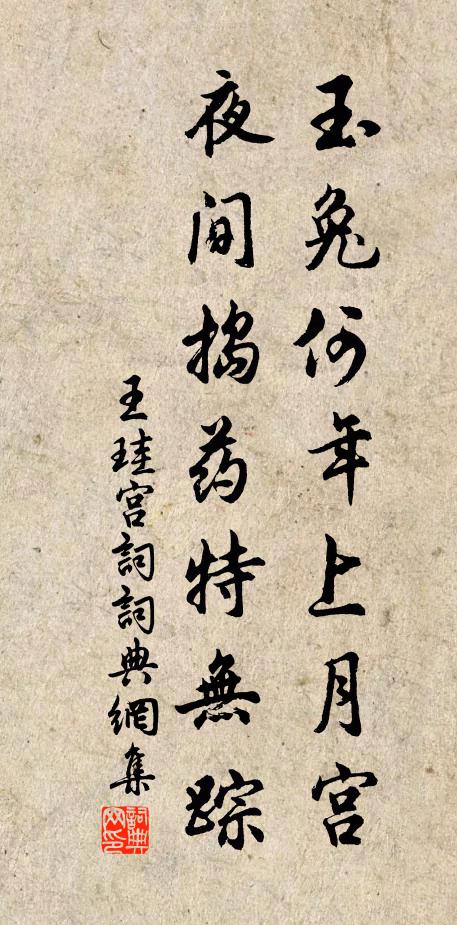 玉兔何年上月宫
夜间搗药特無踪
王珪宫詞詞典網集
詞典网印